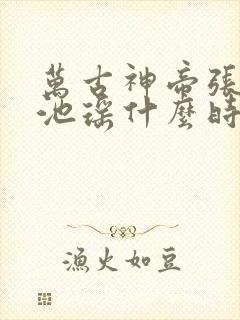 萬古神帝張
池瑤什麼時
漁火如豆